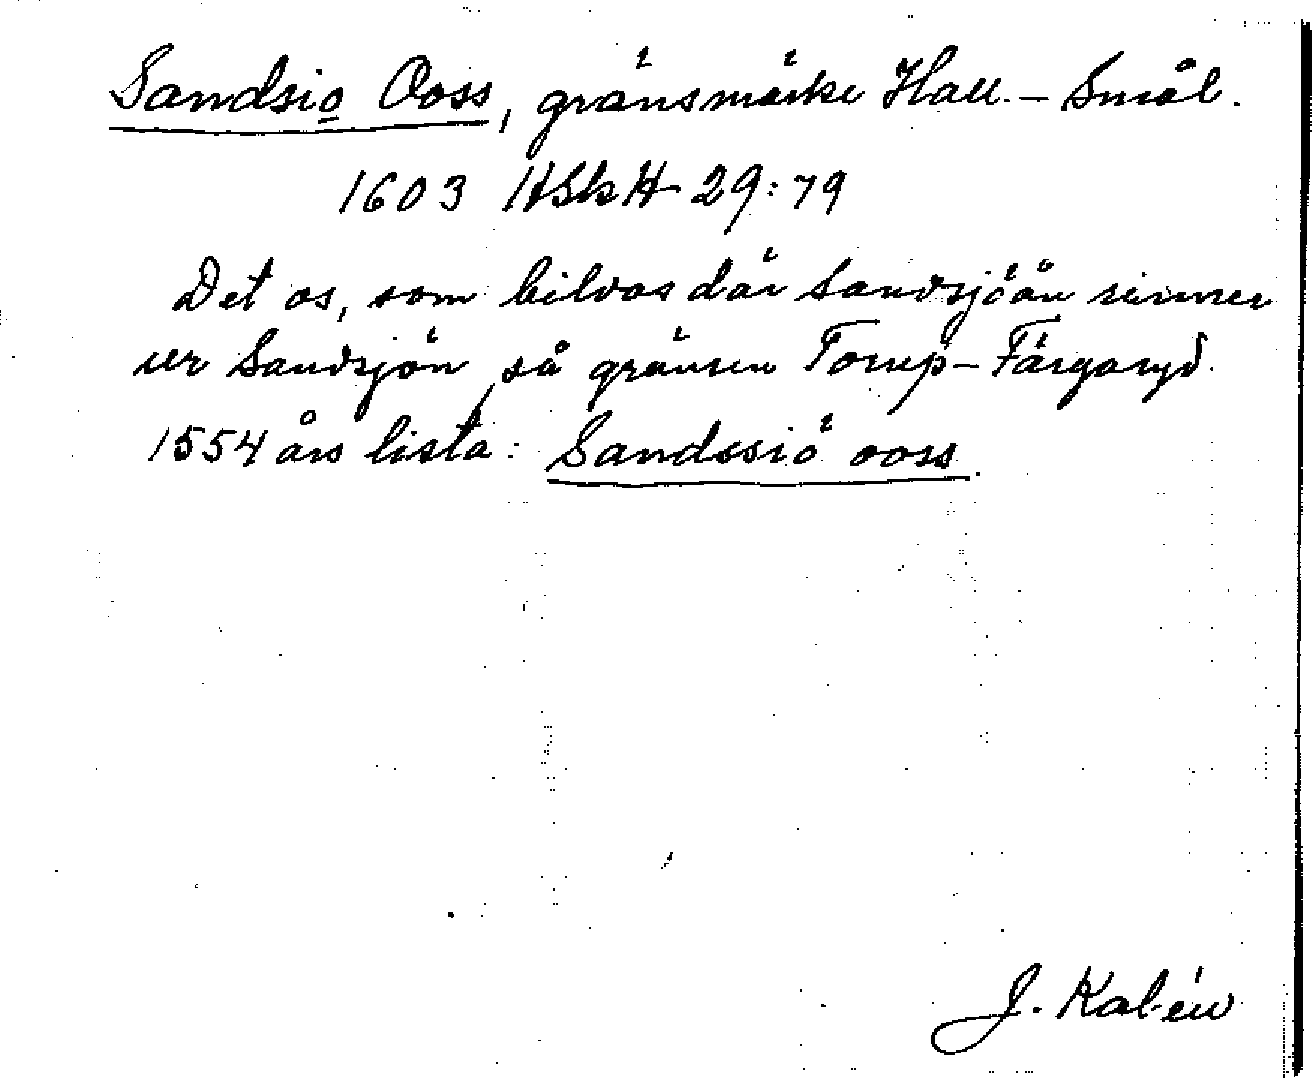 Sandsio Ooss, gränsmärke Hall. - Smål.
1603 HSkH 29:79
Det os, som bildas där Sandsjöån rinner
ur Sandsjön, så gränsen Torup - Färgaryd.
1554 års lista: Sandssiö ooss.
J. Kalén